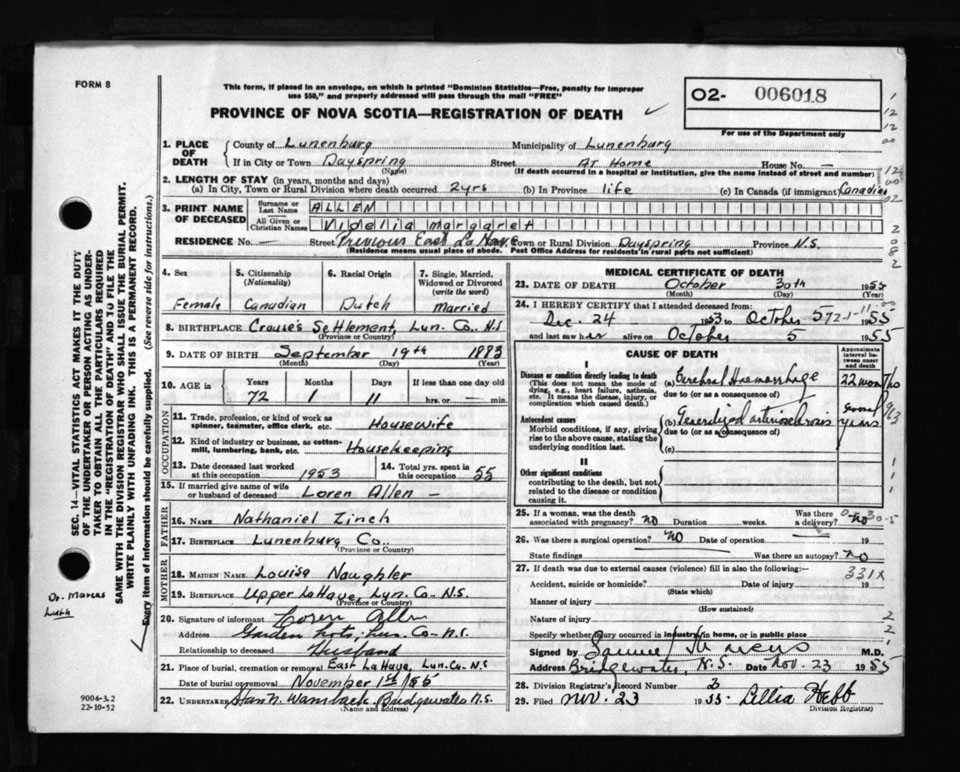 FORM 8
This form, if placed in an envelope, on which is printed "Dominion Statistics—Free, penalty for improper
use $50," and properly addressed will pass through the mail "FREE"
PROVINCE OF NOVA SCOTIA—REGISTRATION OF DEATH
O2- 006018
For use of the Department only
1. PLACE OF DEATH
County of Lunenburg Municipality of Lunenburg
If in City or Town Dayspring Street At Home House No. —
(Name) (If death occurred in a hospital or institution, give the name instead of street and number)
2. LENGTH OF STAY (in years, months and days)
(a) In City, Town or Rural Division where death occurred 2yrs (b) In Province life (c) In Canada (if immigrant) Canadian
3. PRINT NAME OF DECEASED
Surname or Last Name ALLEN
All Given or Christian Names Videlia margaret
RESIDENCE No. — Street Previous East La Have Town or Rural Division Dayspring Province N.S.
(Residence means usual place of abode. Post Office Address for residents in rural parts not sufficient)
4. Sex Female
5. Citizenship (Nationality) Canadian
6. Racial Origin Dutch
7. Single, Married, Widowed or Divorced (write the word) Married
8. BIRTHPLACE Crouse's Settlement, Lun. Co. N.S
(Province or Country)
9. DATE OF BIRTH September 19th 1883
(Month) (Day) (Year)
10. AGE in Years Months Days If less than one day old
72 1 11 hrs. or — min.
OCCUPATION
11. Trade, profession, or kind of work as
spinner, teamster, office clerk, etc. Housewife
12. Kind of industry or business, as cotton-
mill, lumbering, bank, etc. Housekeeping
13. Date deceased last worked
at this occupation 1953
14. Total yrs. spent in
this occupation 55
15. If married give name of wife
or husband of deceased Loren Allen —
FATHER
16. NAME Nathaniel Zinck
17. BIRTHPLACE Lunenburg Co.
(Province or Country)
MOTHER
18. MAIDEN NAME Louisa Naughler
19. BIRTHPLACE Upper LaHave, Lun. Co. N.S.
(Province or Country)
20. Signature of informant Loren Allen
Address Garden Lots, Lun. Co. N.S.
Relationship to deceased Husband
21. Place of burial, cremation or removal East LaHave, Lun. Co. N.S
Date of burial or removal November 1st 1955
22. UNDERTAKER Wamback Bridgewater N.S.
(Name and address)
MEDICAL CERTIFICATE OF DEATH
23. DATE OF DEATH October 30th 1955
(Month) (Day) (Year)
24. I HEREBY CERTIFY that I attended deceased from:
Dec. 24 1953 to October 5 1955
and last saw her alive on October 5 1955
CAUSE OF DEATH
Approximate interval between onset and death
I
Disease or condition directly leading to death
(This does not mean the mode of
dying, e.g., heart failure, asthenia,
etc. It means the disease, injury, or
complication which caused death.)
(a) Cerebral Haemorrhage 22 months
due to (or as a consequence of)
Antecedent causes
Morbid conditions, if any, giving
rise to the above cause, stating the
underlying condition last.
(b) Generalized arteriosclerosis several years
due to (or as a consequence of)
(c)
II
Other significant conditions
contributing to the death, but not
related to the disease or condition
causing it.
25. If a woman, was the death
associated with pregnancy? no Duration weeks. Was there a delivery? no
26. Was there a surgical operation? no Date of operation — 19
State findings Was there an autopsy? no
27. If death was due to external causes (violence) fill in also the following:— 331X
Accident, suicide or homicide? Date of injury 19
(State which)
Manner of injury
(How sustained)
Nature of injury
Specify whether injury occurred in industry, in home, or in public place
Signed by Samuel Marcus M.D.
Address Bridgewater, N.S. Date Nov. 23 1955
28. Division Registrar's Record Number 3
29. Filed Nov. 23 1955 Lellia Hebb
Division Registrar
SEC. 14—VITAL STATISTICS ACT MAKES IT THE DUTY
OF THE UNDERTAKER OR PERSON ACTING AS UNDER-
TAKER TO OBTAIN ALL THE PARTICULARS REQUIRED
IN THE "REGISTRATION OF DEATH" AND TO FILE THE
SAME WITH THE DIVISION REGISTRAR WHO SHALL ISSUE THE BURIAL PERMIT.
WRITE PLAINLY WITH UNFADING INK. THIS IS A PERMANENT RECORD.
Every item of information should be carefully supplied. (See reverse side for instructions.)
Dr. Marcus
9004-3.2
22-10-52